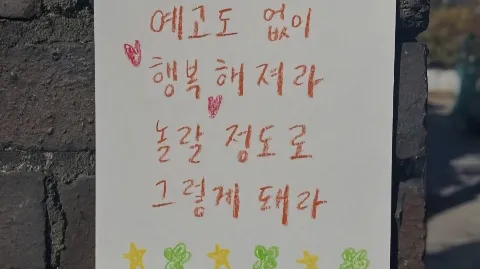 예고도 없이
행복해져라
놀랄 정도로
그렇게 돼라